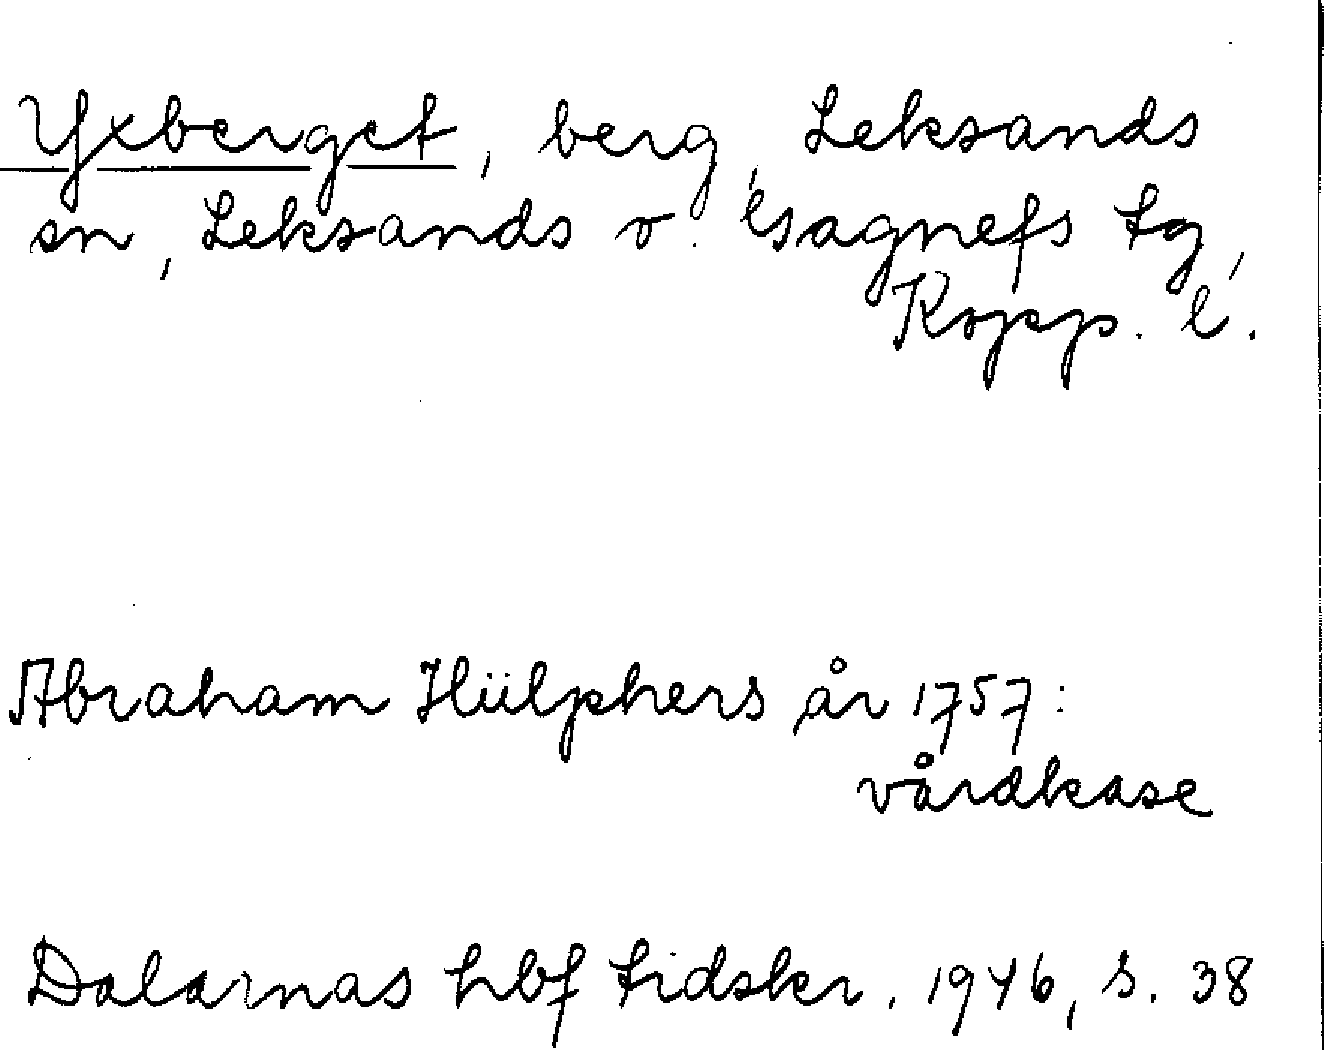 Yxberget, berg, Leksands
sn, Leksands o. Gagnefs tg,
Kopp. l.
Abraham Hülphers år 1757:
vårdkase
Dalarnas hbf tidskr. 1946, s. 38